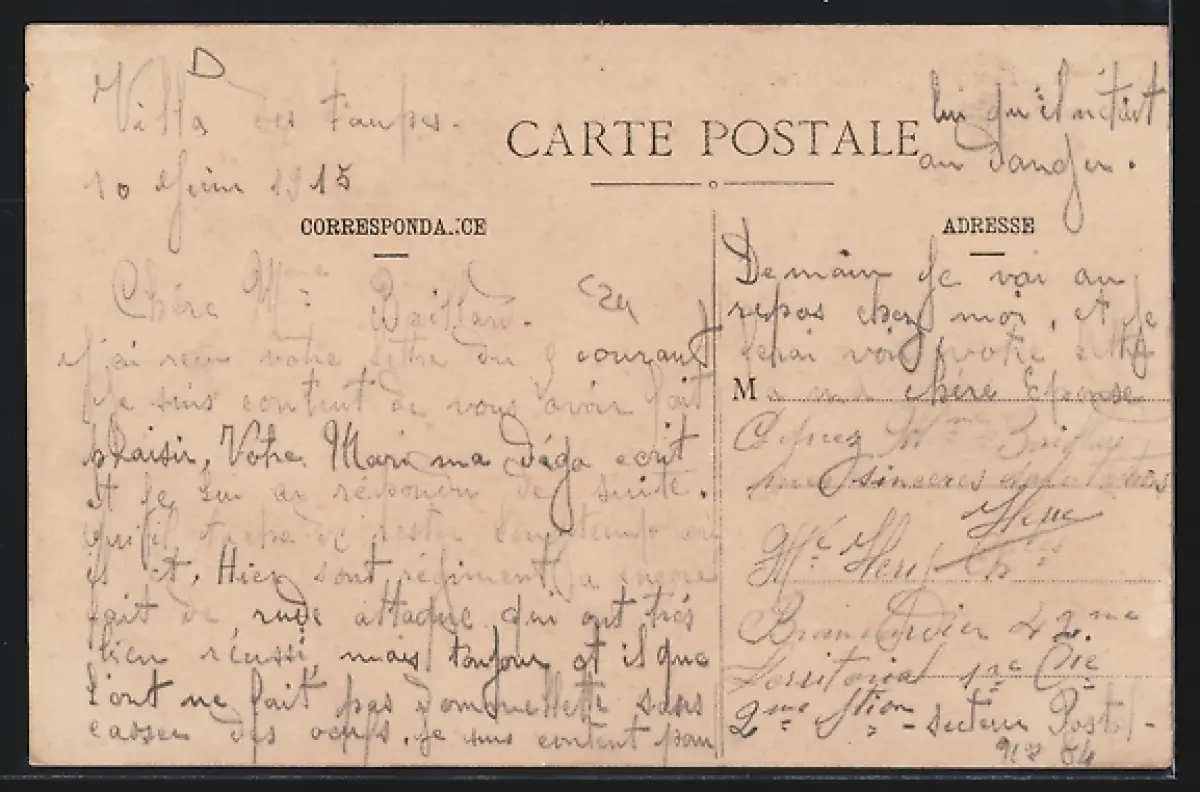 Villa des taupes.
10 Juin 1915
CARTE POSTALE
CORRESPONDANCE
Chère Mme
J'ai reçu votre lettre du 9 courant
Je suis content de vous avoir fait
plaisir, Votre Mari ma déga ecrit
et je lui ai répondu de suite.
qu'il tache de rester longtemp où
il et. Hier sont régiment a encore
fait de rude attaque qui ont très
bien réussi, mais toujour et il que
l'ont ne fait pas d'ommellette sans
casser des oeufs. Je suis content pour
lui qu'il n'était
au danger.
ADRESSE
Demain Je vai au
repos chez moi, et Je
ferai voir votre lettre
M
a ma chère Epouse
mes sincères salutations
Brancardier 42me
Territorial 1re Cie
2me Stion - secteur Postal -
No 64